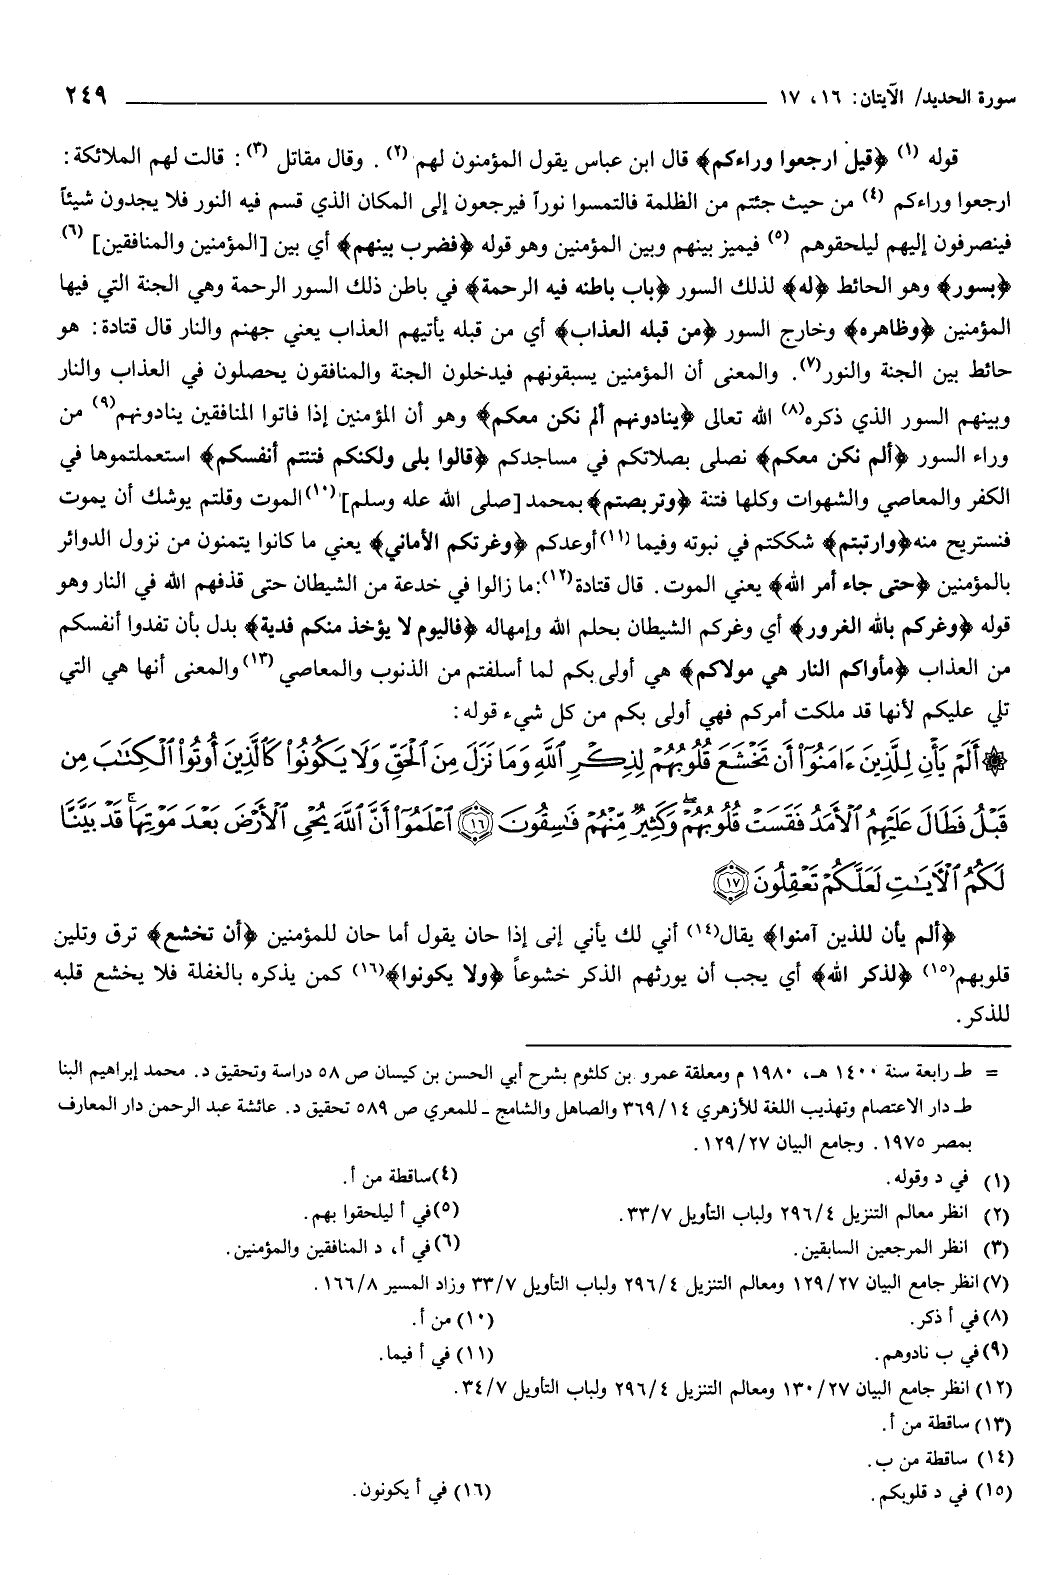 سورة الحديد/ الآيتان: ١٦، ١٧ ٢٤٩
قوله (١) ﴿قيل ارجعوا وراءكم﴾ قال ابن عباس يقول المؤمنون لهم (٢). وقال مقاتل (٣): قالت لهم الملائكة:
ارجعوا وراءكم (٤) من حيث جئتم من الظلمة فالتمسوا نوراً فيرجعون إلى المكان الذي قسم فيه النور فلا يجدون شيئاً
فينصرفون إليهم ليلحقوهم (٥) فيميز بينهم وبين المؤمنين وهو قوله ﴿فضرب بينهم﴾ أي بين [المؤمنين والمنافقين] (٦)
﴿بسور﴾ وهو الحائط ﴿له﴾ لذلك السور ﴿باب باطنه فيه الرحمة﴾ في باطن ذلك السور الرحمة وهي الجنة التي فيها
المؤمنين ﴿وظاهره﴾ وخارج السور ﴿من قبله العذاب﴾ أي من قبله يأتيهم العذاب يعني جهنم والنار قال قتادة: هو
حائط بين الجنة والنور(٧). والمعنى أن المؤمنين يسبقونهم فيدخلون الجنة والمنافقون يحصلون في العذاب والنار
وبينهم السور الذي ذكره(٨) الله تعالى ﴿ينادونهم ألم نكن معكم﴾ وهو أن المؤمنين إذا فاتوا المنافقين ينادونهم(٩) من
وراء السور ﴿ألم نكن معكم﴾ نصلى بصلاتكم في مساجدكم ﴿قالوا بلى ولكنكم فتنتم أنفسكم﴾ استعملتموها في
الكفر والمعاصي والشهوات وكلها فتنة ﴿وتربصتم﴾ بمحمد [صلى الله عله وسلم] (١٠) الموت وقلتم يوشك أن يموت
فنستريح منه ﴿وارتبتم﴾ شككتم في نبوته وفيما (١١) أوعدكم ﴿وغرتكم الأماني﴾ يعني ما كانوا يتمنون من نزول الدوائر
بالمؤمنين ﴿حتى جاء أمر الله﴾ يعني الموت. قال قتادة(١٢): ما زالوا في خدعة من الشيطان حتى قذفهم الله في النار وهو
قوله ﴿وغركم بالله الغرور﴾ أي وغركم الشيطان بحلم الله وإمهاله ﴿فاليوم لا يؤخذ منكم فدية﴾ بدل بأن تفدوا أنفسكم
من العذاب ﴿مأواكم النار هي مولاكم﴾ هي أولى بكم لما أسلفتم من الذنوب والمعاصي (١٣) والمعنى أنها هي التي
تلي عليكم لأنها قد ملكت أمركم فهي أولى بكم من كل شيء قوله:
۞ أَلَمْ يَأْنِ لِلَّذِينَ ءَامَنُوٓا۟ أَن تَخْشَعَ قُلُوبُهُمْ لِذِكْرِ ٱللَّهِ وَمَا نَزَلَ مِنَ ٱلْحَقِّ وَلَا يَكُونُوا۟ كَٱلَّذِينَ أُوتُوا۟ ٱلْكِتَٰبَ مِن
قَبْلُ فَطَالَ عَلَيْهِمُ ٱلْأَمَدُ فَقَسَتْ قُلُوبُهُمْ ۖ وَكَثِيرٌ مِّنْهُمْ فَٰسِقُونَ ۝١٦ ٱعْلَمُوٓا۟ أَنَّ ٱللَّهَ يُحْىِ ٱلْأَرْضَ بَعْدَ مَوْتِهَا ۚ قَدْ بَيَّنَّا
لَكُمُ ٱلْءَايَٰتِ لَعَلَّكُمْ تَعْقِلُونَ ۝١٧
﴿ألم يأن للذين آمنوا﴾ يقال(١٤) أني لك يأني إنى إذا حان يقول أما حان للمؤمنين ﴿أن تخشع﴾ ترق وتلين
قلوبهم(١٥) ﴿لذكر الله﴾ أي يجب أن يورثهم الذكر خشوعاً ﴿ولا يكونوا﴾(١٦) كمن يذكره بالغفلة فلا يخشع قلبه
للذكر.
= طـ رابعة سنة ١٤٠٠ هـ، ١٩٨٠ م ومعلقة عمرو بن كلثوم بشرح أبي الحسن بن كيسان ص ٥٨ دراسة وتحقيق د. محمد إبراهيم البنا
طـ دار الاعتصام وتهذيب اللغة للأزهري ٣٦٩/١٤ والصاهل والشامج ـ للمعري ص ٥٨٩ تحقيق د. عائشة عبد الرحمن دار المعارف
بمصر ١٩٧٥. وجامع البيان ١٢٩/٢٧.
(١) في د وقوله. (٤) ساقطة من أ.
(٢) انظر معالم التنزيل ٢٩٦/٤ ولباب التأويل ٣٣/٧. (٥) في أ ليلحقوا بهم.
(٣) انظر المرجعين السابقين. (٦) في أ، د المنافقين والمؤمنين.
(٧) انظر جامع البيان ١٢٩/٢٧ ومعالم التنزيل ٢٩٦/٤ ولباب التأويل ٣٣/٧ وزاد المسير ١٦٦/٨.
(٨) في أ ذكر. (١٠) من أ.
(٩) في ب نادوهم. (١١) في أ فيما.
(١٢) انظر جامع البيان ١٣٠/٢٧ ومعالم التنزيل ٢٩٦/٤ ولباب التأويل ٣٤/٧.
(١٣) ساقطة من أ.
(١٤) ساقطة من ب.
(١٥) في د قلوبكم. (١٦) في أ يكونون.